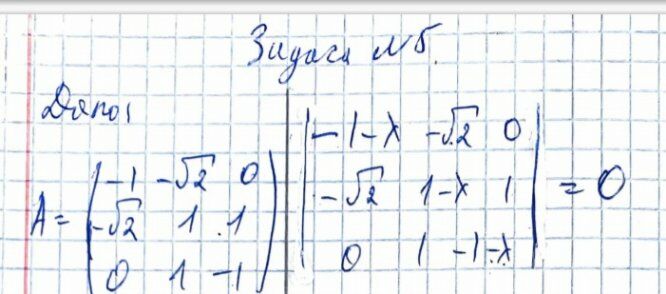 Задача №5.
Дано:
A = \begin{pmatrix} -1 & -\sqrt{2} & 0 \\ -\sqrt{2} & 1 & 1 \\ 0 & 1 & -1 \end{pmatrix}
\begin{vmatrix} -1-λ & -\sqrt{2} & 0 \\ -\sqrt{2} & 1-λ & 1 \\ 0 & 1 & -1-λ \end{vmatrix} = 0